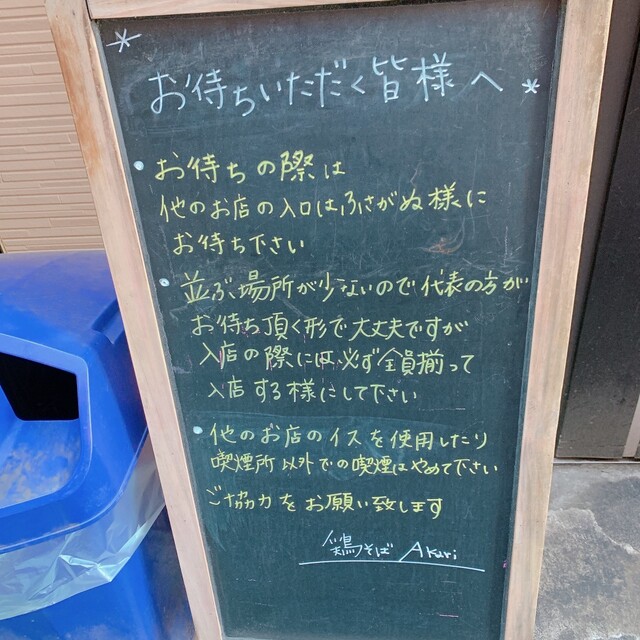 * お待ちいただく皆様へ *
• お待ちの際は
他のお店の入口はふさがぬ様に
お待ち下さい
• 並ぶ場所が少ないので代表の方が
お待ち頂く形で大丈夫ですが
入店の際には必ず全員揃って
入店する様にして下さい
• 他のお店のイスを使用したり
喫煙所以外での喫煙はやめて下さい
ご協力をお願い致します
鶏そば Akari